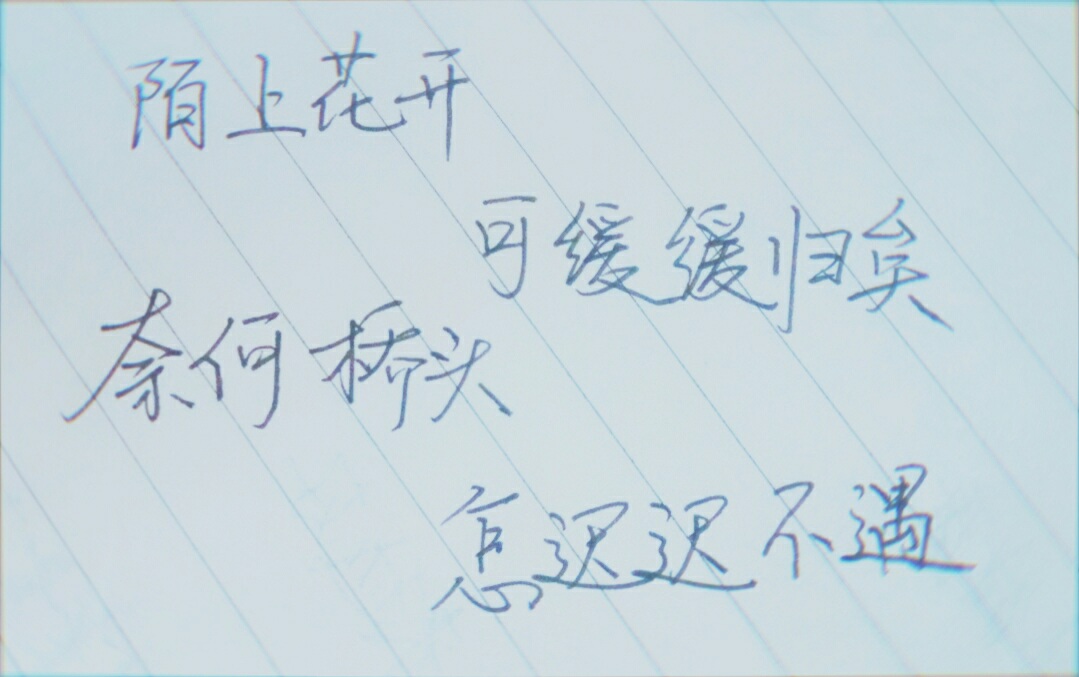 陌上花开
可缓缓归矣
奈何桥头
怎迟迟不遇